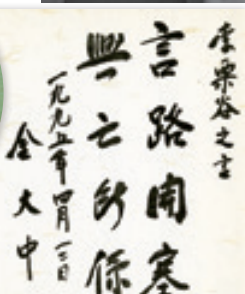 李栗谷之言
言路開塞
興亡所係
一九九五年 四月 十三日
金大中